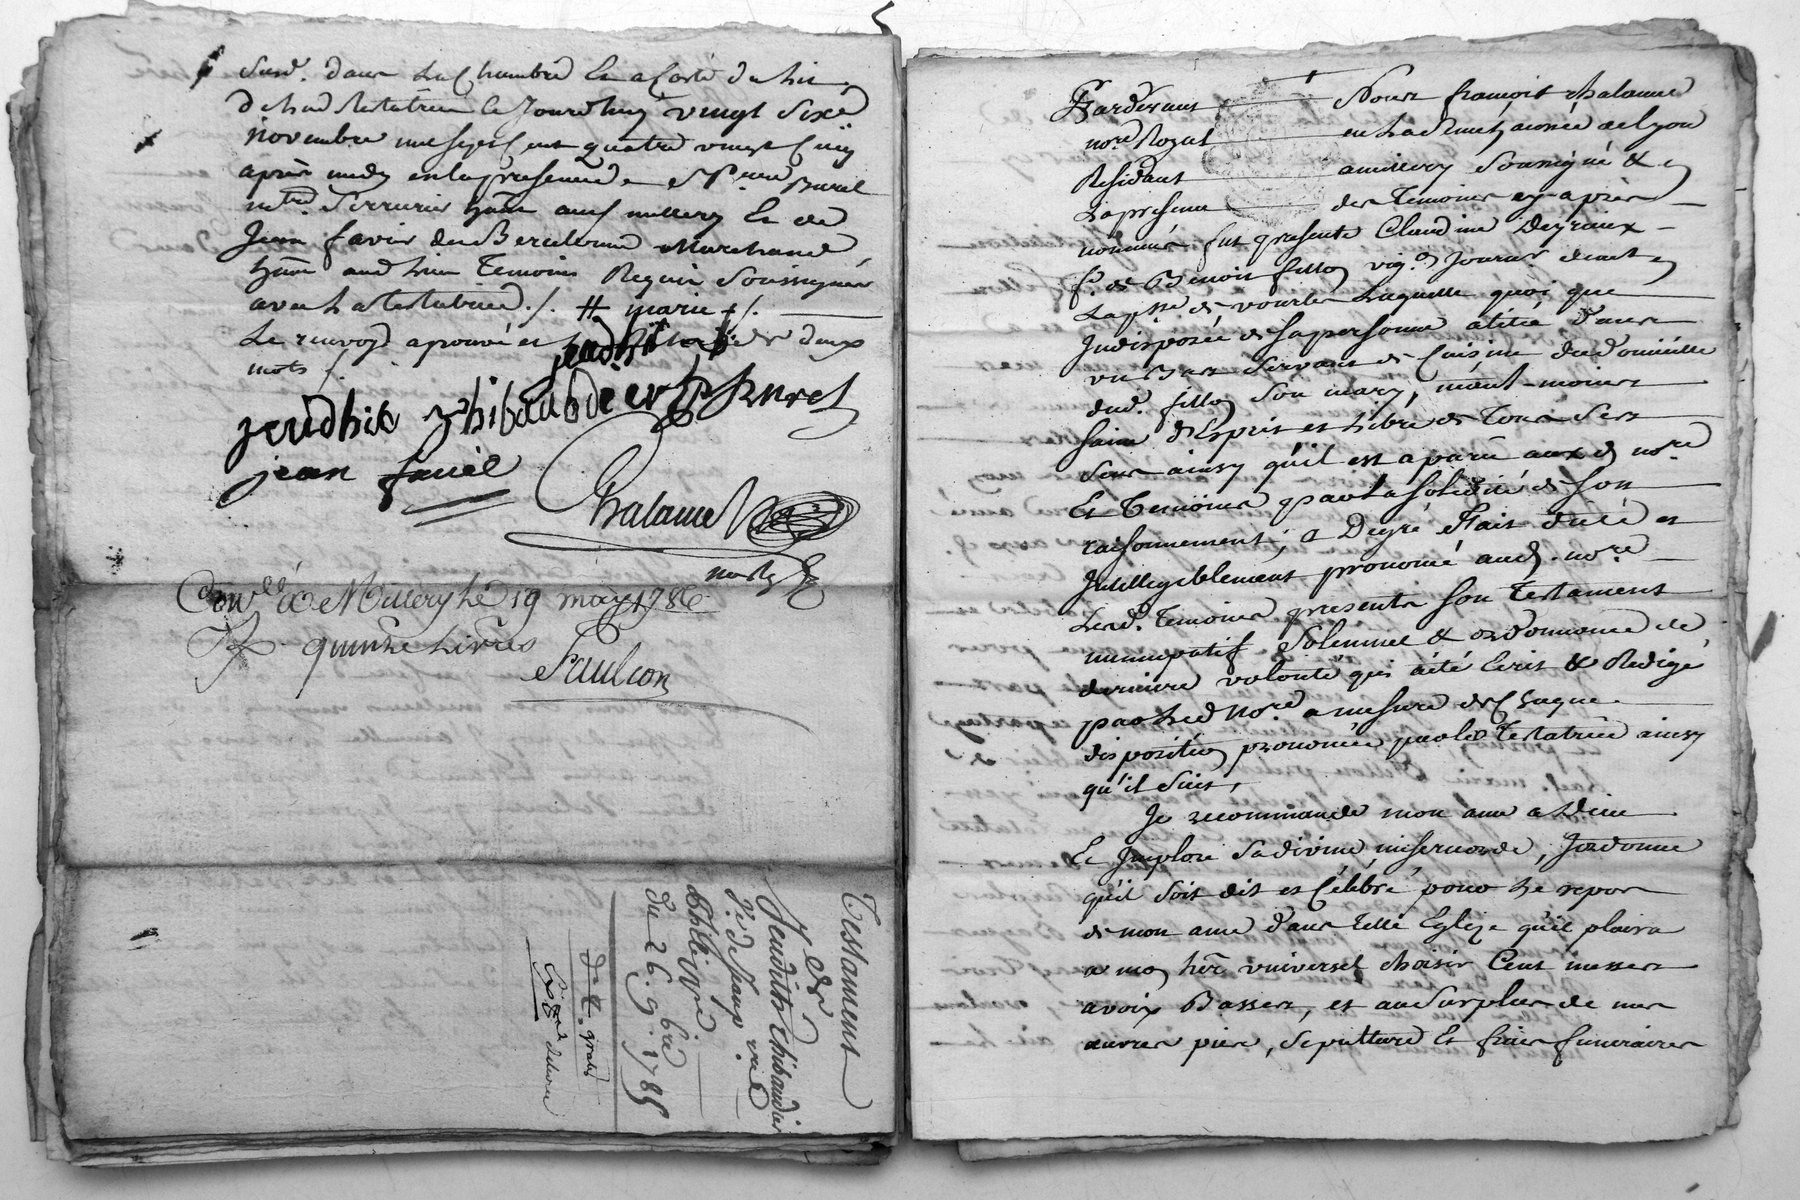 Susd. dans La Chambre Et a Coste du Lit
de Lad testatrice Ce Jourdhuy vingt Sixe
novembre mil Sept Cent quatre vingt Cinq
après midy en la presence de Sr. Burel
me. Serrurier hânt aud millery Et de
Jean favier Marchand
hânt aud Lieu Temoins Requis Soussignés
avec La testatrice ./. # marie ./.
Le renvoy aprouvé et de deux
mots ./.
jeudhit
jeudhit thibaudier Burel
jean favié
Chalamel
nore
Conllé a Millery Le 19 mars 1786
R quinze Livres
Paulcon
Testament
de
Jeudith thibaudier
Ve de
Phil
Du 26. 9bre 1785
d. L. grosse
Expd. delivrée
Pardevant Nous françois Chalamel
nore. Royal en La Senechaussée de Lyon
Residant a millery Soussigné & en
La presence des Temoins cy après
nommés fut presente Claudine Degraix
fe. de Benoit fillon vigon Journr. demt en
La psse de vourles Laquelle quoi que
Indisposée de sa personne alitée Dans
un Bas Servant de Cuisine du domicille
dud. fillon Son mary, néant-moins
saine d'Esprit et Libre de Tous Ses
Sens ainsy qu'il est aparu aux d. nore
Et Temoins par La Solidité de Son
raisonnement; a Degré Fait dicté et
Intelligiblement prononcé aud. nore
Lesd. Temoins presents Son Testament
nuncupatif Solemnel & ordonnance de
derniere volonté qui a été Ecrit & Redigé
par Led Nore a mesure de Chaque
disposition prononcée par la Testatrice ainsy
qu'il Suit,
Je recommande mon ame a Dieu
Et Implore Sa divine misericorde, J'ordonne
qu'il soit dit et Célébré pour Le repos
de mon ame Dans telle Eglize qu'il plaira
a mon hér. universel choisir Cent messes
a voix Basses, et au Surplus de mes
œuvres pies, Sepulture Et frais funeraires